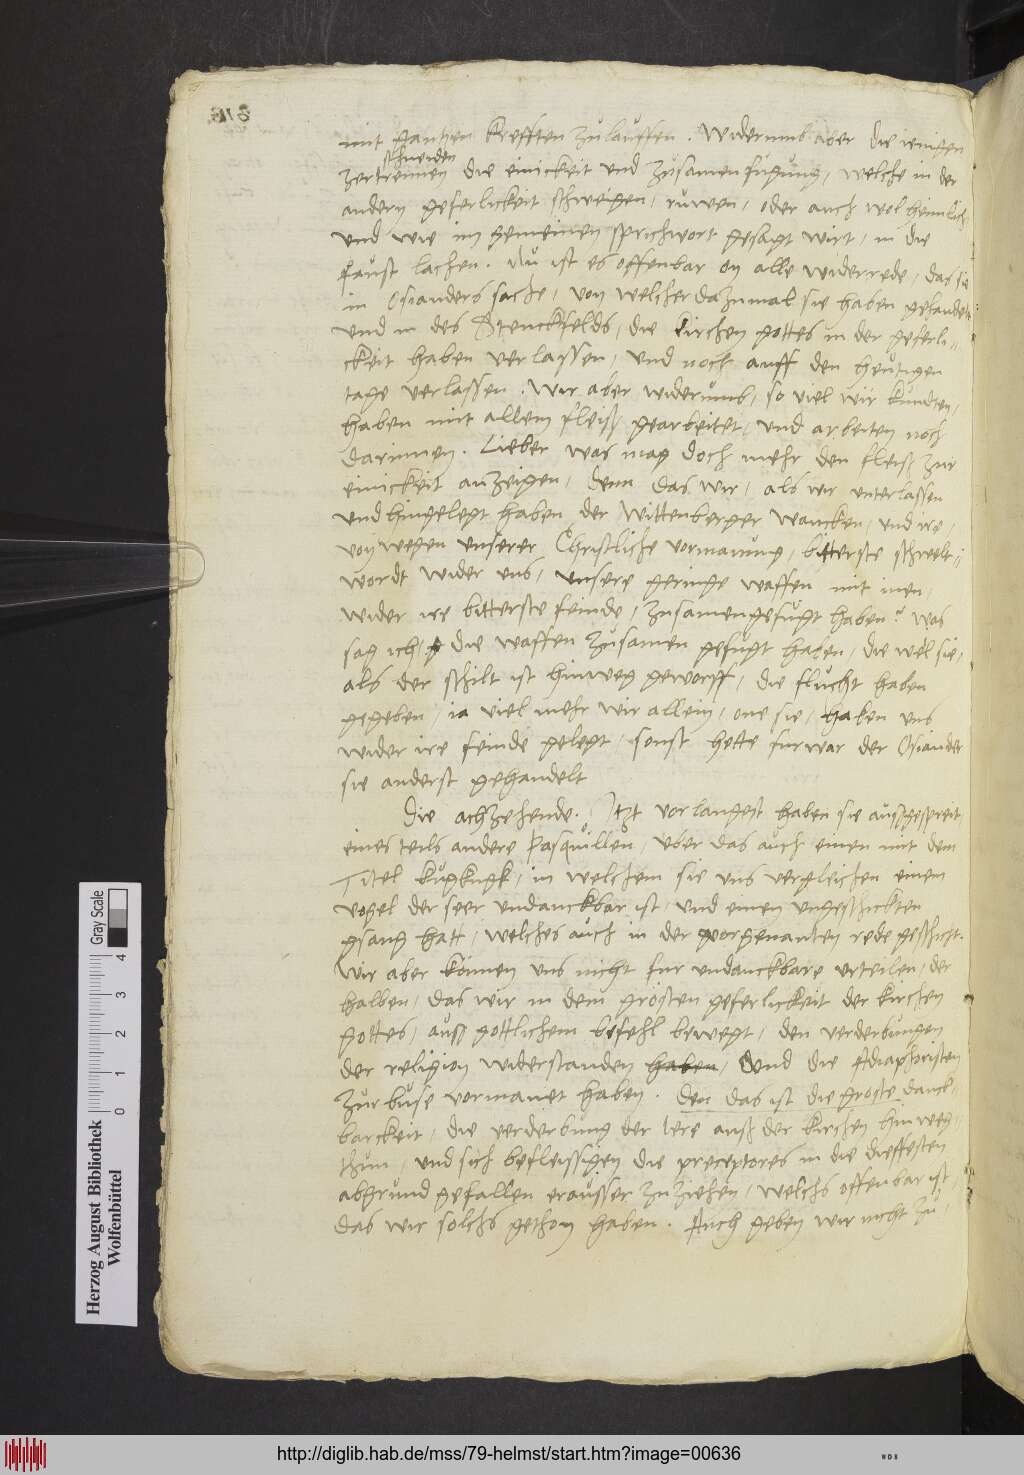 mit gantzen krefften zulauffen. Widerumb aber die ienigen
schneiden
zertrennen die einickeit und zusamenfugung, welche in der
andern geferlickeit schweigen, ruwen, oder auch wol heimlich
und wie im gemeinen sprichwort gesagt wirt, in die
faust lachen. Nu ist es offenbar on alle widerrede, das sie
in Osianders sache, von welcher dazumal sie haben gehandelt
und in des Stenckfelds, die kirchen gottes in der geferli-
ckeit haben verlassen, und noch auff den heutigen
tage verlassen. Wir aber widerumb, so viel wir kundten,
haben mit allem fleiß gearbeitet, und arbeiten noch
darinnen. Lieber was mag doch mehr den fleiß zur
einickeit anzeigen, denn das wir, als wir unterlassen
und hingelegt haben der Wittenberger wancken, und ire,
von wegen unserer Christliche vormanung, bitterste schmelt-
wordt wider uns, unsere geringe waffen mit inen,
wider ire bitterste feinde, zusamengefugt haben? Was
sag ich, die waffen zusamen gefugt haben, die wel sie,
als der schilt ist hinweg geworff, die flucht haben
gegeben, ia viel mehr wir allein, one sie, haben uns
wider ire feinde gelegt, sonst hette furwar der Osiander
sie anderst gehandelt
Die achzehende. Itzt vorlangest haben sie aussgespreit
eines teils andere Pasquillen, uber das auch einen mit dem
Titel kugkugk, in welchem sie uns vergleichen einem
vogel der seer undanckbar ist, und einen ungeschickten
gsang hatt, welches auch in der vorgenanten rede geschicht.
Wir aber können uns nicht fur undanckbare urteilen, der
halben, das wir in dem grösten geferlickeit der kirchen
gottes, auss gottlichem befehl bewegt, den verderbungen
der religion widerstanden haben, Und die Adiaphoristen
zur buse vormanet haben. Den das ist die groste danck-
barckeit, die verderbung der lere auß der kirchen hinweg
thun, und sich befleissigen die preceptores in die dieffesten
abgrund gefallen erausser zuziehen, welchs offenbar ist,
das wir solchs gethon haben. Auch geben wir nicht zu,
Gray Scale
0 1 2 3 4
Herzog August Bibliothek
Wolfenbüttel
http://diglib.hab.de/mss/79-helmst/start.htm?image=00636
WDB